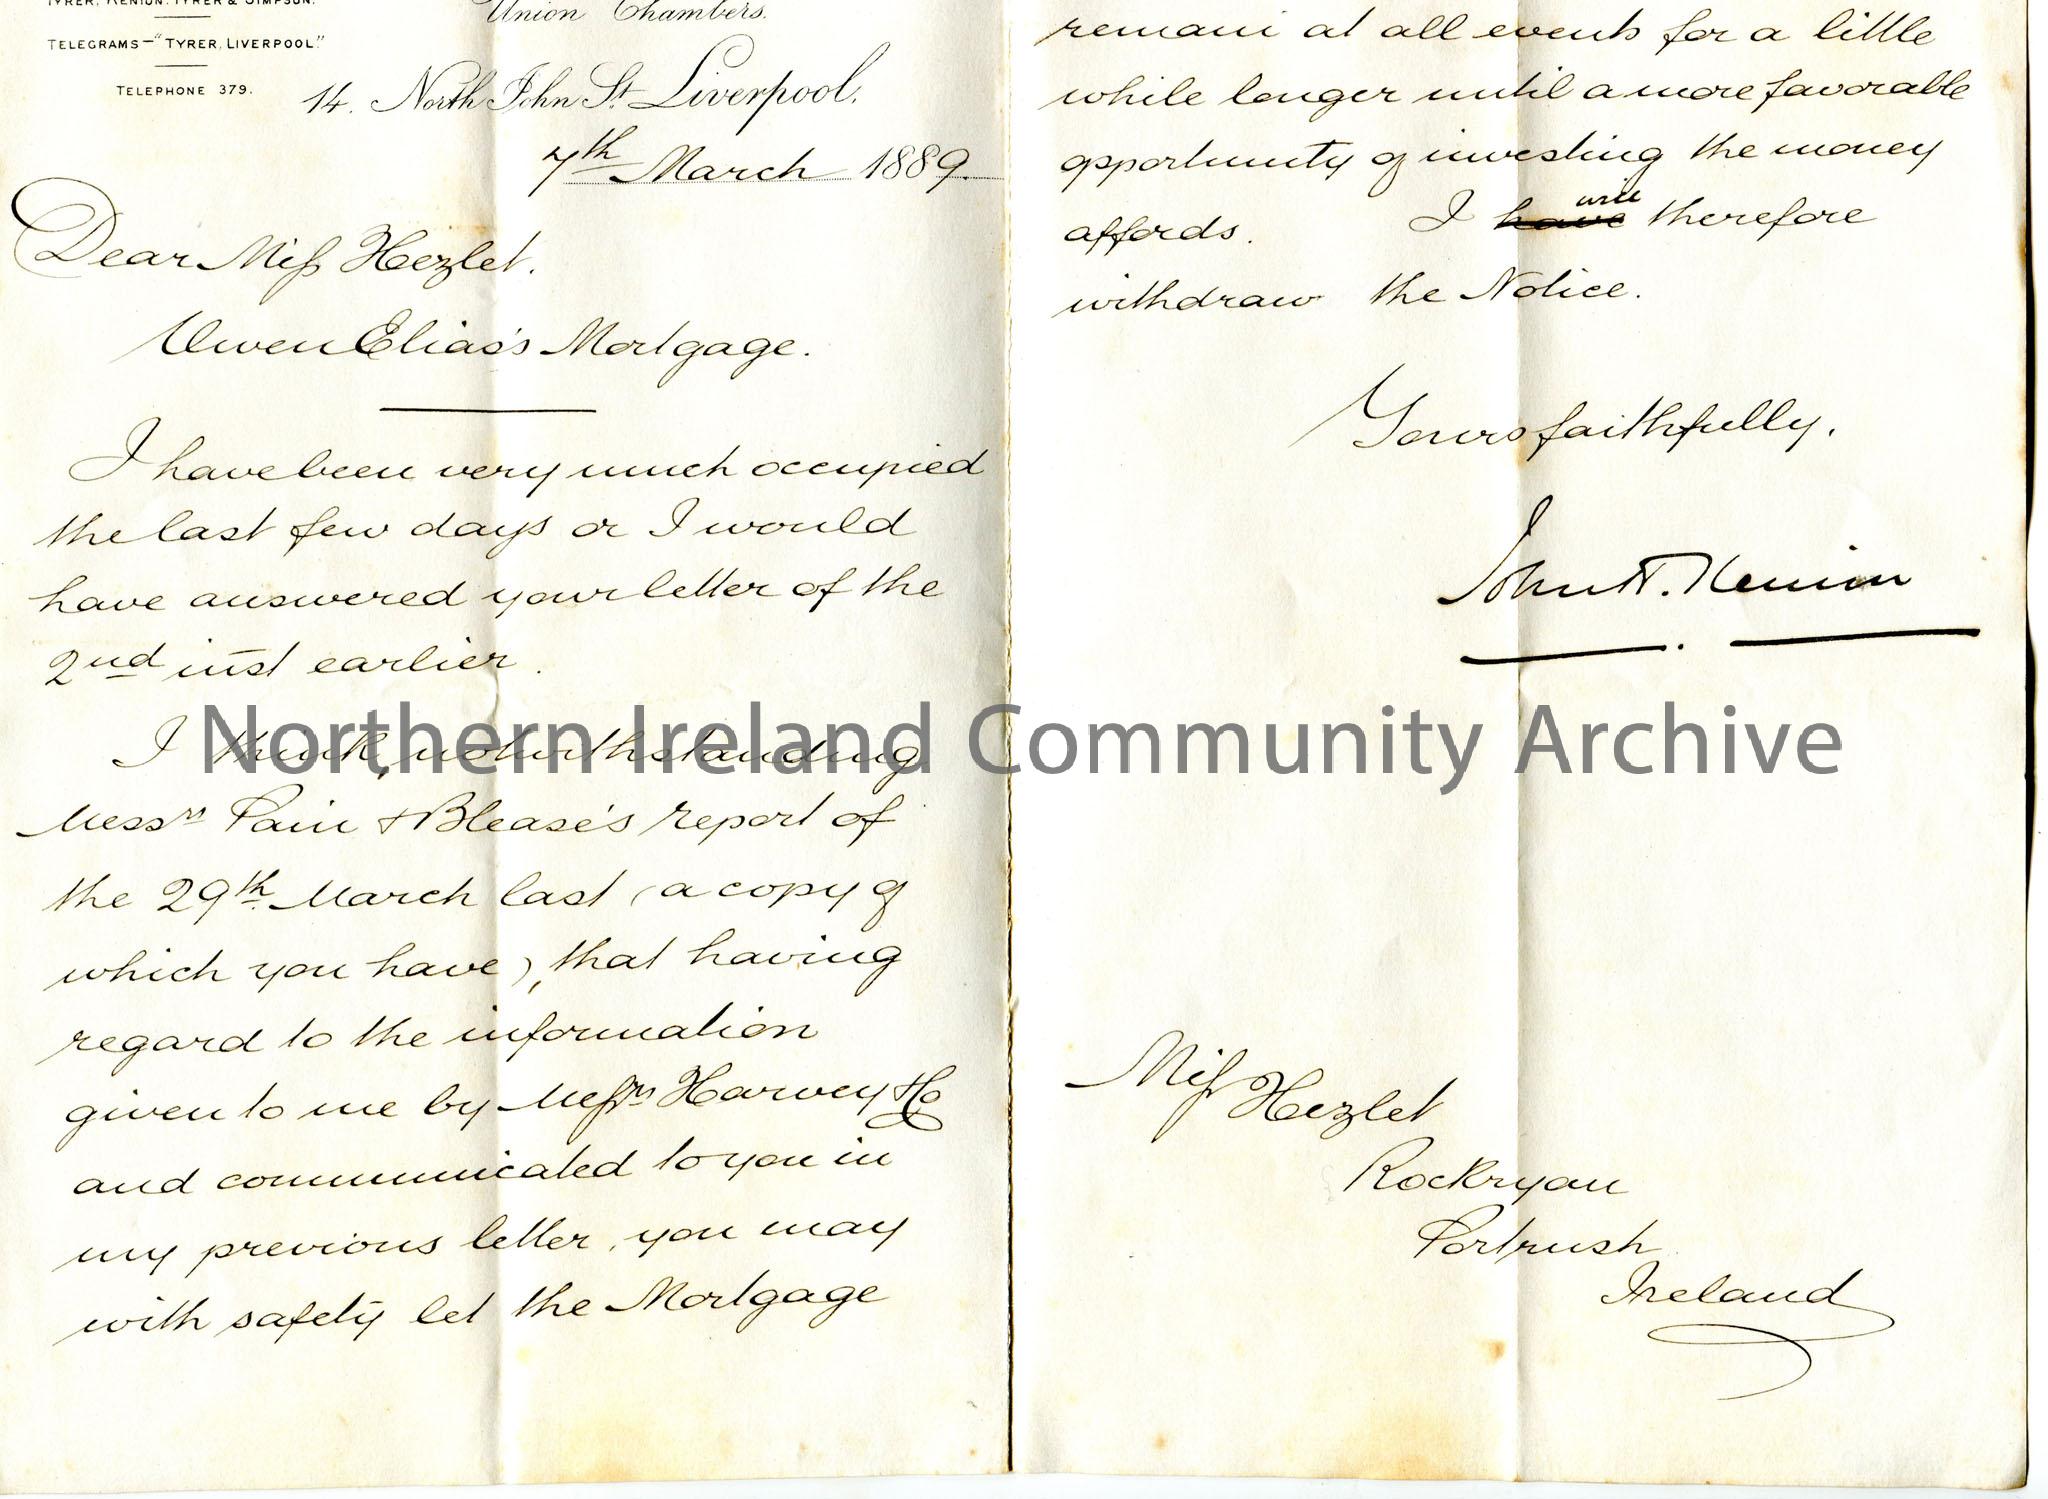 TYRER, KENION, TYRER & SIMPSON.
TELEGRAMS—"TYRER, LIVERPOOL."
TELEPHONE 379.
Union Chambers.
14. North John St. Liverpool,
7th March 1889.
Dear Miss Hezlet.
Owen Elias's Mortgage.
I have been very much occupied
the last few days or I would
have answered your letter of the
2nd inst earlier.
I think, notwithstanding
Messrs Pain & Blease's report of
the 29th March last (a copy of
which you have), that having
regard to the information
given to me by Messrs Harvey & Co
and communicated to you in
my previous letter, you may
with safety let the Mortgage
remain at all events for a little
while longer until a more favorable
opportunity of investing the money
affords. I have will therefore
withdraw the Notice.
Yours faithfully,
John H. Kenion
Miss Hezlet
Rockryan
Portrush
Ireland
Northern Ireland Community Archive